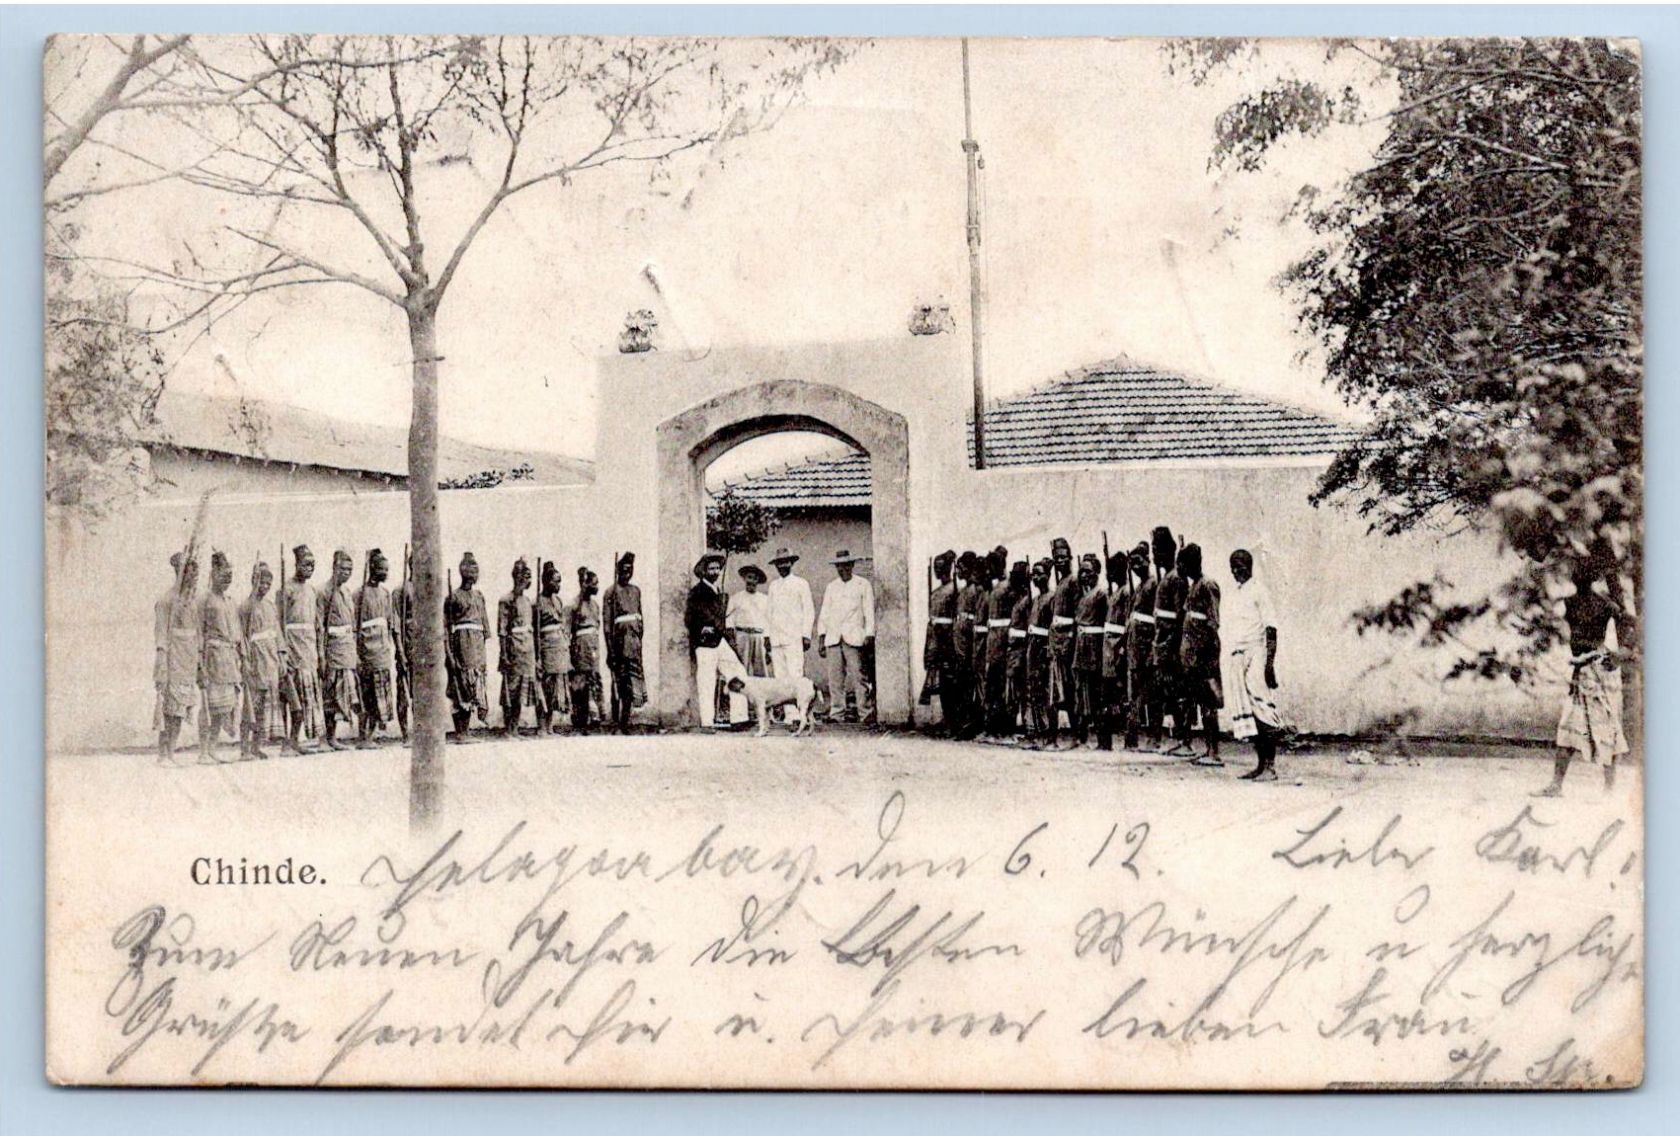 Chinde. Delagoa bay. den 6. 12. Lieber Karl!
Zum Neuen Jahre die Besten Wünsche u herzliche
Grüsse sendet Dir u. Deiner lieben Frau
H.